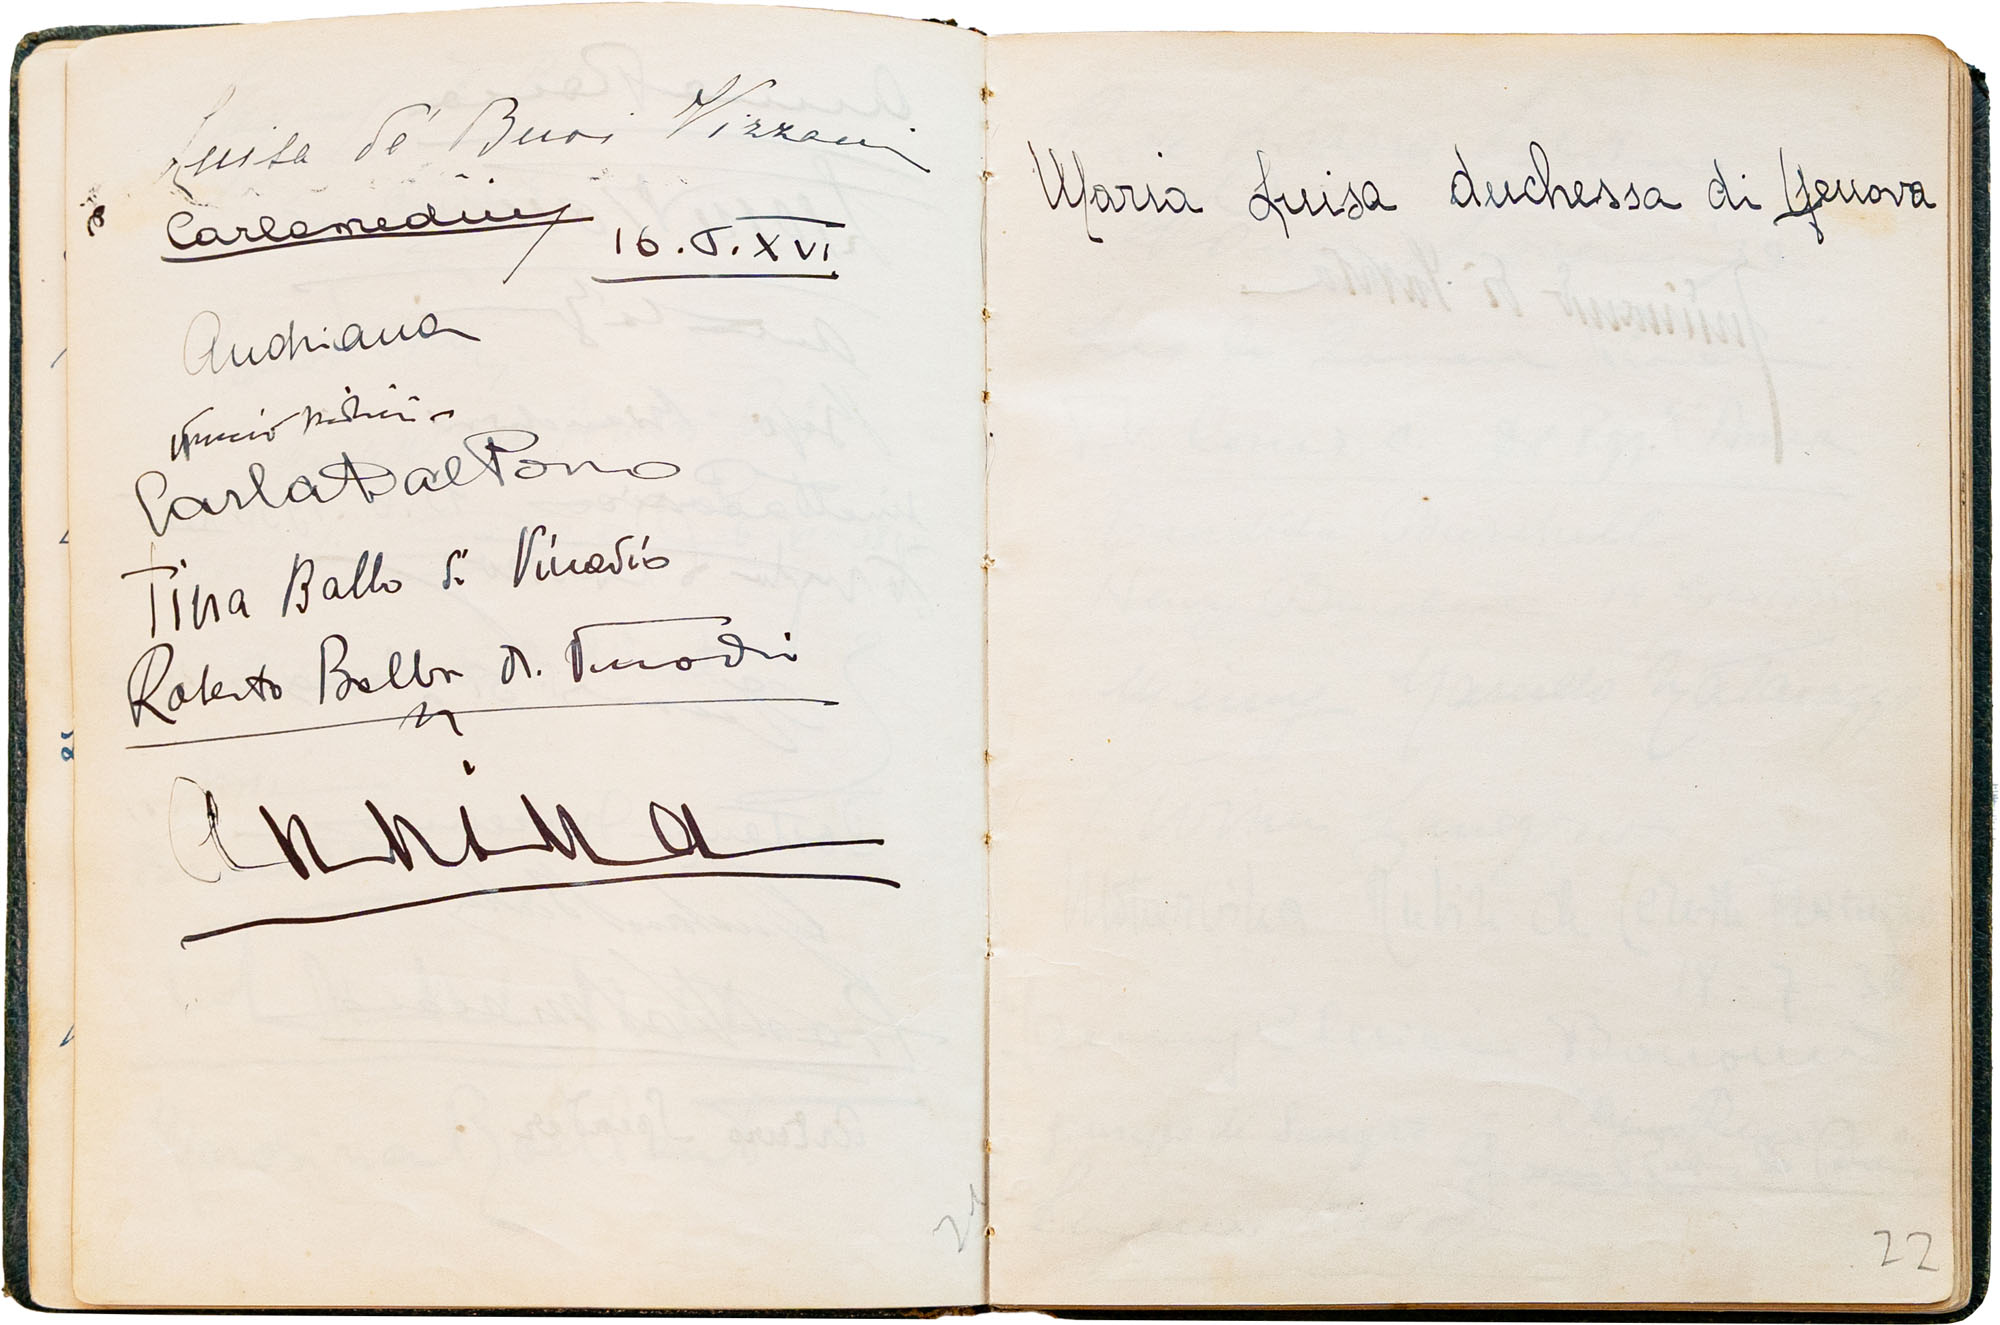 Luisa de' Buoi Vizzani
Carlo Medini
16.5.XVI
Andriana
Carla Dal Pono
Tina Balbo di Vinadio
Roberto Balbo di Vinadio
Annina
Maria Luisa duchessa di Genova
22